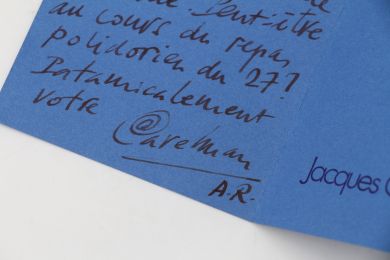 Peut-être
au cours du repas
polidorien du 27?
Patamicalement
votre
C@relman
A.R.
Jacques C